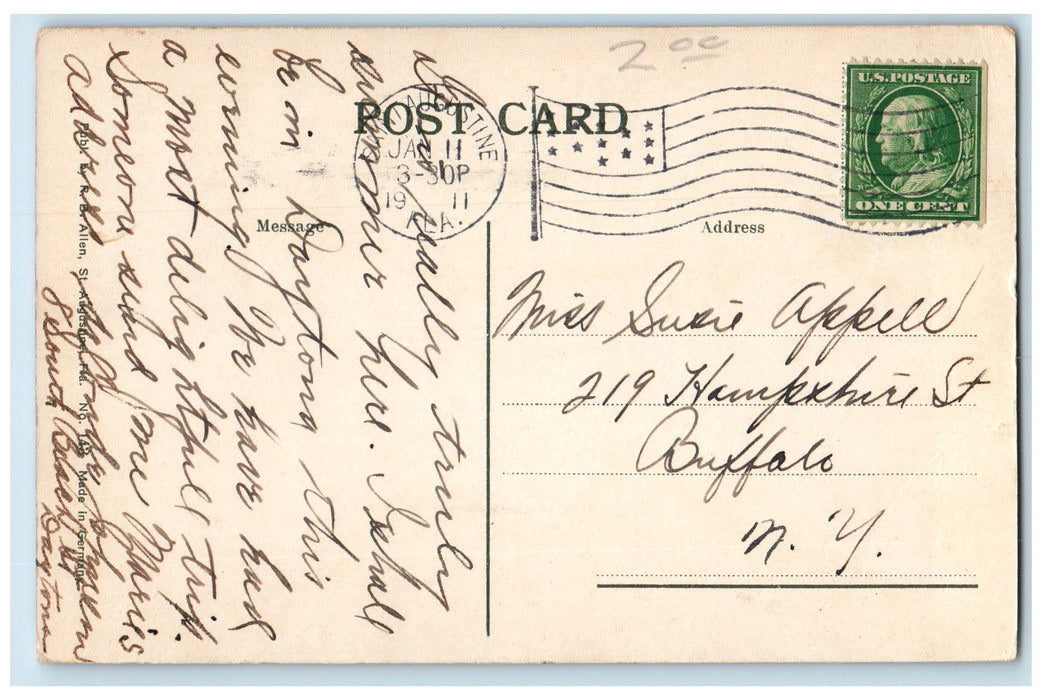 2 00
POST CARD
U.S. POSTAGE
ONE CENT
AUGUSTINE
JAN 11
3-30P
19 11
FLA.
Message
Address
Miss Susie Appell
219 Hampshire St
Buffalo
N. Y.
It is really truly
summer here. I shall
be in Daytona this
evening. We have had
a most delightful trip.
Someone send me Marie's
address.
8 South Beach St
Daytona
Pub. by R. B. Allen, St. Augustine, Fla. No. Made in Germany